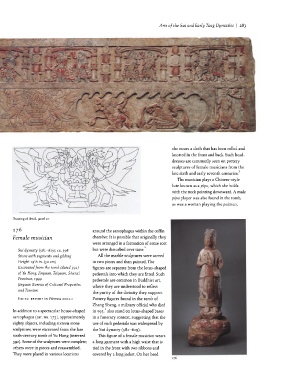 Arts of the Sui and Early Tang Dynasties | 283
Drawing of detail, panel 10
176
Female musician
Sui dynasty (581–618), ca. 598
Stone with pigments and gilding
Excavated from the tomb (dated 592)
of Yu Hong, Jinyuan, Taiyuan, Shanxi
Province, 1999
Shanxi Institute of Cultural Properties
and Tourism
In addition to a spectacular house-shaped
sarcophagus (cat. no. 175), approximately
eighty objects, including sixteen stone
sculptures, were excavated from the late
sixth-century tomb of Yu Hong (interred
592). Some of the sculptures were complete;
others were in pieces and reassembled.
They were placed in various locations
around the sarcophagus within the coffin
chamber. It is possible that originally they
were arranged in a formation of some sort
but were disturbed over time.
All the marble sculptures were carved
in two pieces and then joined. The
figures are separate from the lotus-shaped
pedestals into which they are fitted. Such
pedestals are common in Buddhist art,
where they are understood to reflect
the purity of the divinity they support.
Pottery figures found in the tomb of
Zhang Sheng, a military official who died
in 595, also stand on lotus-shaped bases
in a funerary context, suggesting that the
use of such pedestals was widespread by
the Sui dynasty (581–618).
This figure of a female musician wears
a long garment with a high waist that is
tied in the front with two ribbons and
covered by a long jacket. On her head
she wears a cloth that has been rolled and
knotted in the front and back. Such head-
dresses are commonly seen on pottery
sculptures of female musicians from the
late sixth and early seventh centuries.
The musician plays a Chinese-style
lute known as a pipa, which she holds
with the neck pointing downward. A male
pipa player was also found in the tomb,
as was a woman playing the
176